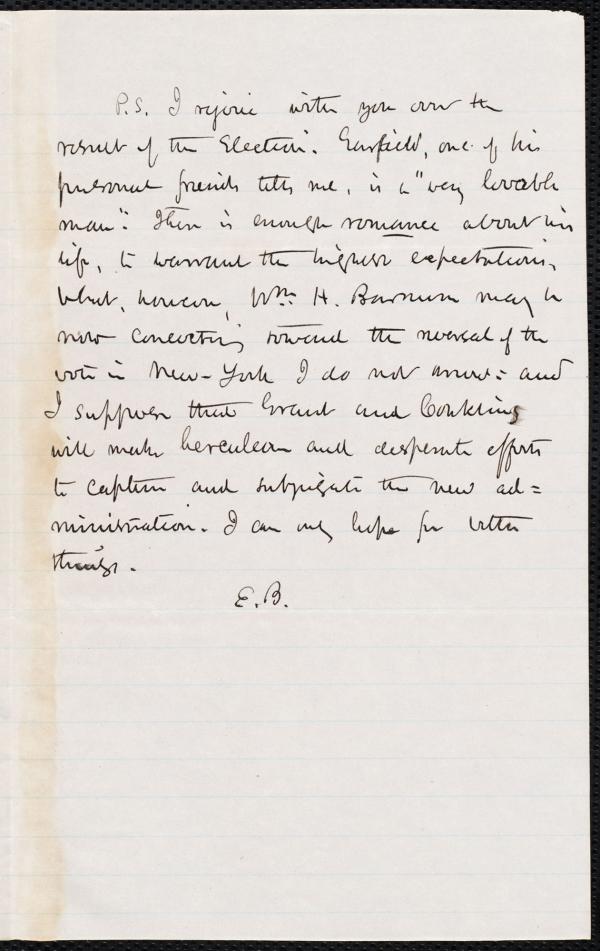 P.S. I rejoice with you over the
result of the Election. Garfield, one of his
personal friends tells me, is a "very lovable
man". There is enough romance about his
life, to warrant the highest expectations.
What, however, Wm. H. Barnum may be
now concocting toward the reversal of the
vote in New-York I do not know: and
I suppose that Grant and Conkling
will make herculean and desperate efforts
to capture and subjugate the new ad=
ministration. I can only hope for better
things.
E.B.